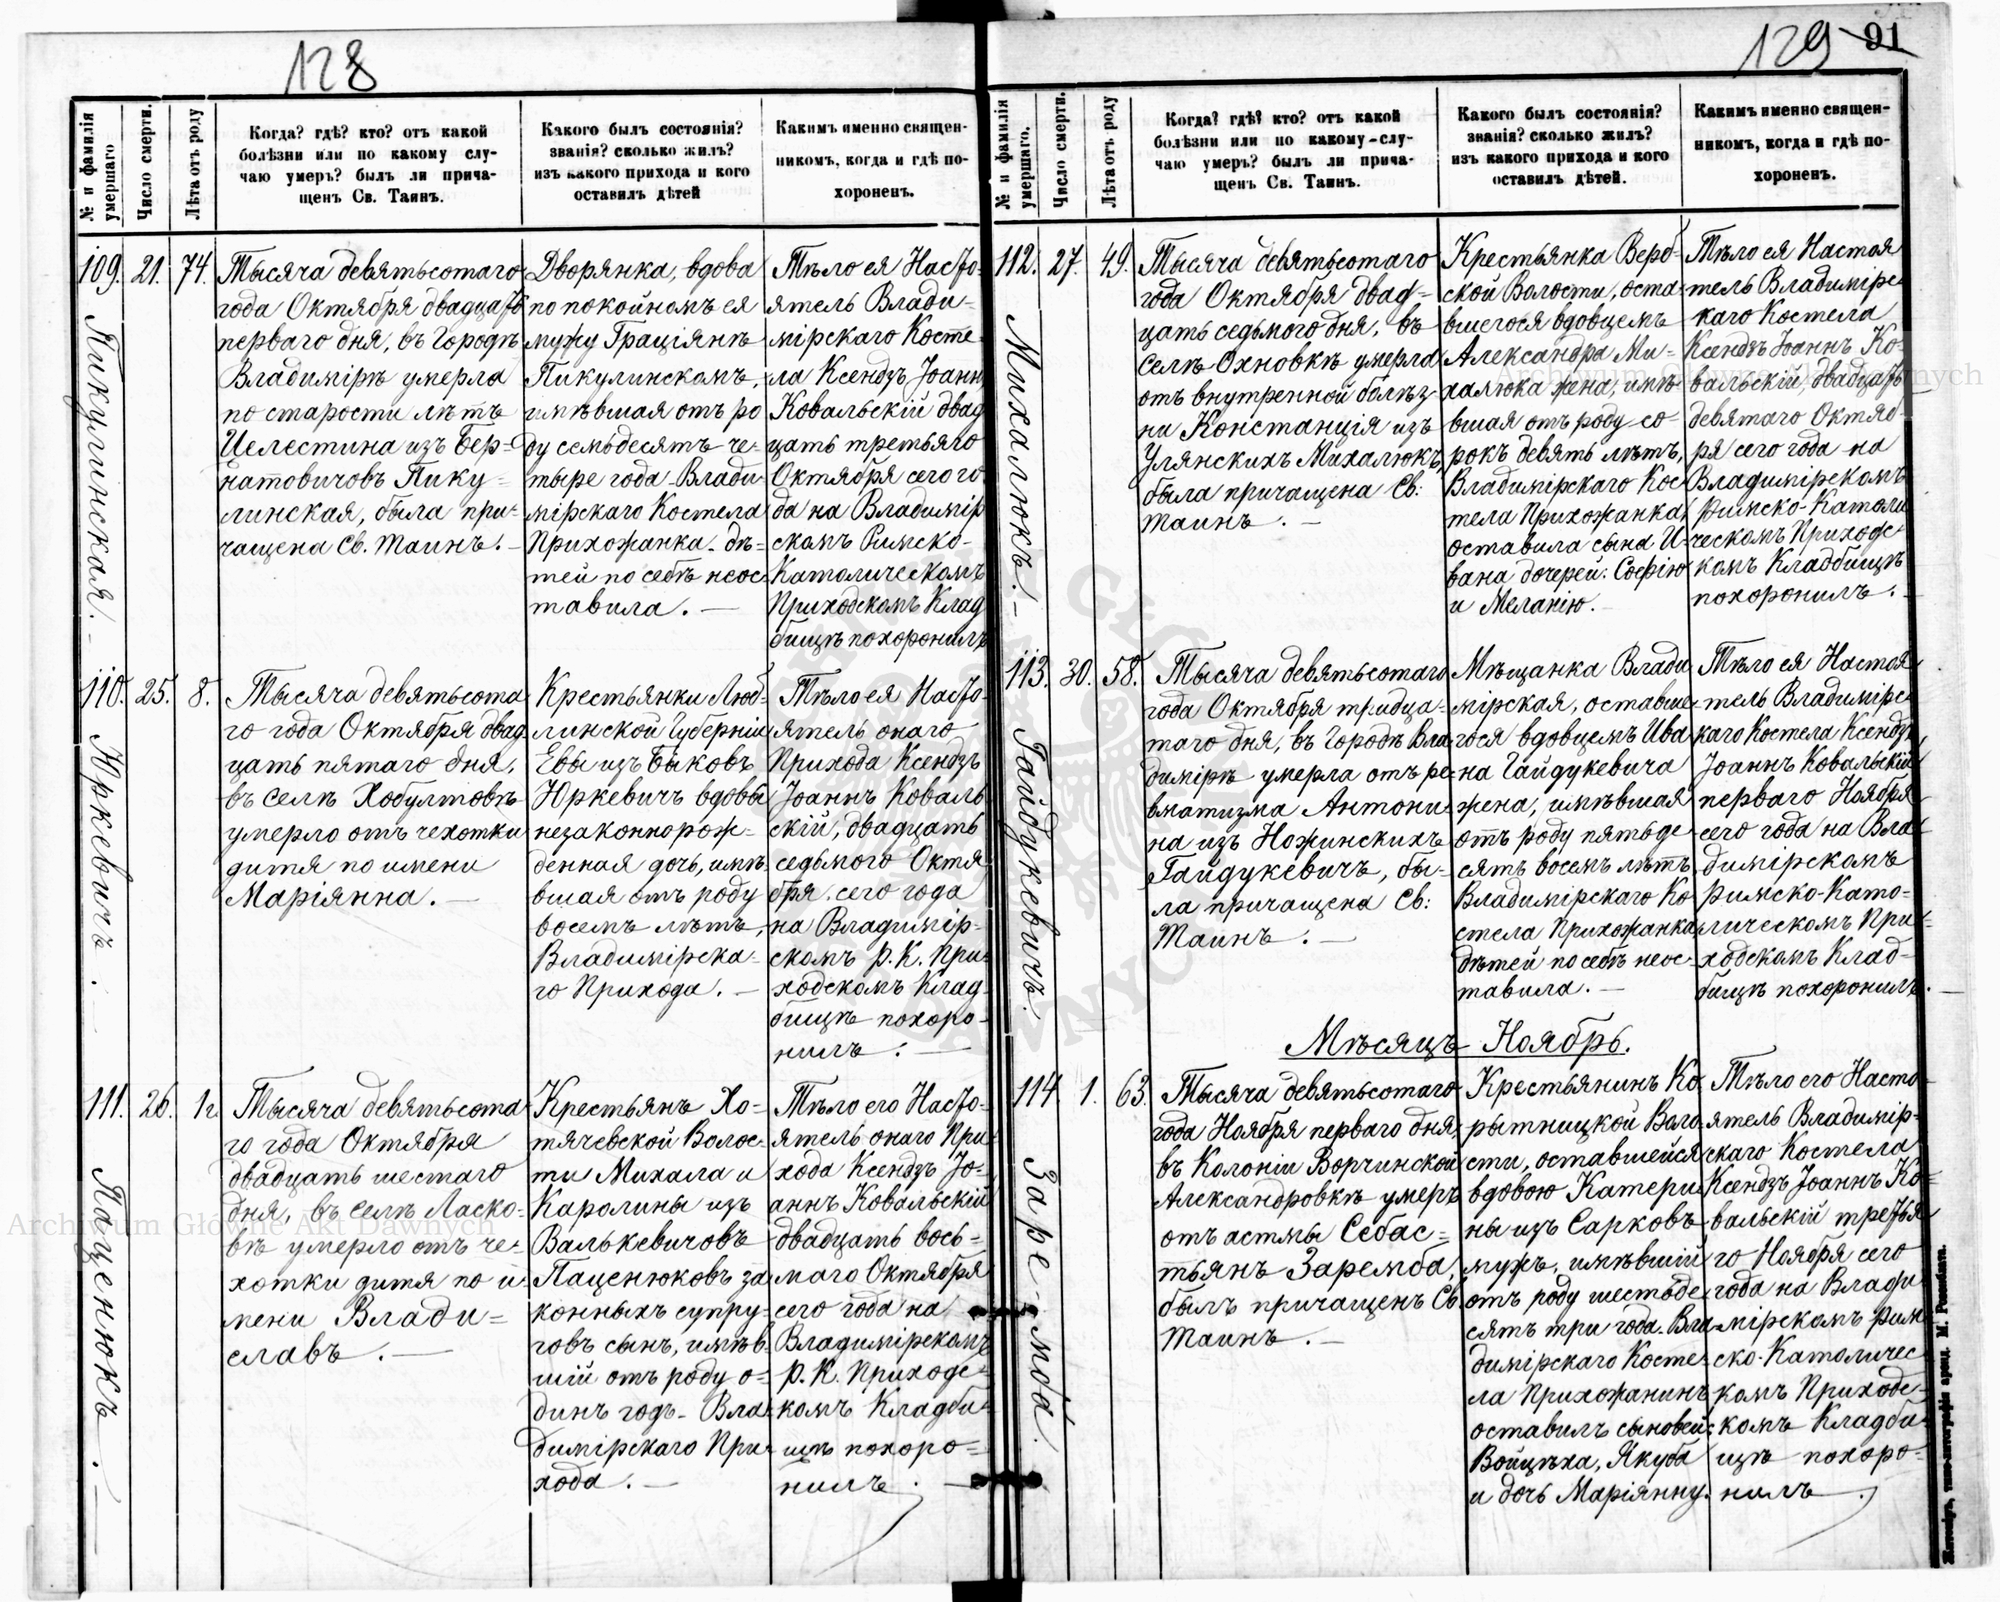 128
№ и фамилія умершаго
Число смерти.
Лѣта отъ роду
Когда? гдѣ? кто? отъ какой
болѣзни или по какому слу-
чаю умеръ? былъ ли прича-
щенъ Св. Таинъ.
Какого былъ состоянія?
званія? сколько жилъ?
изъ какого прихода и кого
оставилъ дѣтей
Какимъ именно священ-
никомъ, когда и гдѣ по-
хороненъ.
109.
Пикулинская.
21.
74.
Тысяча девятьсотаго
года Октября двадцать
перваго дня, въ Городѣ
Владимірѣ умерла
по старости лѣтъ
Целестина изъ Бер-
натовичовъ Пику=
линская, была при-
чащена Св. Таинъ.
Дворянка, вдова
по покойномъ ея
мужу Граціянѣ
Пикулинскомъ,
имѣвшая отъ ро
ду семьдесятъ че-
тыре года Влади
мірскаго Костела
Прихожанка. дѣ-
тей по себѣ неос-
тавила.
Тѣло ея Насто-
ятель Влади-
мірскаго Косте-
ла Ксендзъ Іоаннъ
Ковальскій двад
цать третьяго
Октября сего го
да на Владимір
скомъ Римско-
Католическомъ
Приходскомъ Клад
бищѣ похоронилъ
110.
Юркевичъ.
25.
8.
Тысяча девятьсота
го года Октября двад
цать пятаго дня,
въ селѣ Хобултовѣ
умерло отъ чехотки
дитя по имени
Маріянна.
Крестьянки Люб-
линской Губерніи
Евы изъ Быковъ
Юркевичъ вдовы
незаконнорож-
денная дочь, имѣ-
вшая отъ роду
восемь лѣтъ,
Владимірска-
го Прихода.
Тѣло ея Насто-
ятель онаго
Прихода Ксендзъ
Іоаннъ Коваль
скій, двадцать
седьмого Октя
бря сего года
на Владимір-
скомъ Р. К. При-
ходскомъ Клад-
бищѣ похоро-
нилъ.
111.
Паценюкъ.
26.
1г.
Тысяча девятьсота
го года Октября
двадцать шестаго
дня, въ селѣ Ласко-
вѣ умерло отъ че-
хотки дитя по и
мени Влади=
славъ.
Крестьянъ Хо-
тячевской Волос-
ти Михала и
Каролины изъ
Валькевичовъ
Паценюковъ за
конныхъ супру-
говъ сынъ, имѣв-
шій отъ роду о-
динъ годъ Вла
димірскаго При-
хода.
Тѣло его Насто-
ятель онаго При
хода Ксендзъ Іо-
аннъ Ковальскій
двадцать вось=
маго Октября
сего года на
Владимірскомъ
Р. К. Приходс-
комъ Кладби-
щѣ похоро=
нилъ.
129
91
№ и фамилія умершаго.
Число смерти.
Лѣта отъ роду
Когда? гдѣ? кто? отъ какой
болѣзни или по какому слу-
чаю умеръ? былъ ли прича-
щенъ Св. Таинъ.
Какого былъ состоянія?
званія? сколько жилъ?
изъ какого прихода и кого
оставилъ дѣтей.
Какимъ именно священ-
никомъ, когда и гдѣ по-
хороненъ.
112.
Михалюкъ.
27.
49.
Тысяча девятьсотаго
года Октября двад=
цать седьмого дня, въ
Селѣ Охновкѣ умерла
отъ внутренной болѣз
ни Констанція изъ
Улянскихъ Михалюкъ,
была причащена Св.
Таинъ.
Крестьянка Верб-
ской Волости, оста-
вшегося вдовцемъ
Александра Ми-
халюка жена, имѣ-
вшая отъ роду со-
рокъ девять лѣтъ,
Владимірскаго Кос-
тела Прихожанка,
оставила сына И-
вана дочерей: Софію
и Меланію.
Тѣло ея Настоя
тель Владимірс-
каго Костела
Ксендзъ Іоаннъ Ко-
вальскій, двадцать
девятаго Октяб-
ря сего года на
Владимірскомъ
Римско-Католи
ческомъ Приходс
комъ Кладбищѣ
похоронилъ.
113.
Гайдукевичъ.
30.
58.
Тысяча девятьсотаго
года Октября тридца-
таго дня, въ Городѣ Вла
димірѣ умерла отъ ре-
вматизма Антони-
на изъ Ножинскихъ
Гайдукевичъ, бы-
ла причащена Св:
Таинъ.
Мѣщанка Влади
мірская, оставше-
гося вдовцемъ Ива
на Гайдукевича
жена, имѣвшая
отъ роду пятьде
сятъ восемъ лѣтъ
Владимірскаго Ко
стела Прихожанка
дѣтей по себѣ неос-
тавила.
Тѣло ея Настоя
тель Владимірс-
каго Костела Ксендзъ
Іоаннъ Ковальскій
перваго Ноября
сего года на Вла
димірскомъ
Римско-Като-
лическомъ При-
ходскомъ Клад-
бищѣ похоронилъ.
Мѣсяцъ Ноябрь.
114.
Заремба.
1.
63.
Тысяча девятьсотаго
года Ноября перваго дня,
въ Колоніи Ворчинской
Александровкѣ умеръ
отъ астмы Себас=
тьянъ Заремба,
былъ причащенъ Св.
Таинъ.
Крестьянинъ Ко
рытницкой Воло
сти, оставшейся
вдовою Катери
ны изъ Сарковъ
мужъ, имѣвшій
отъ роду шестьде
сятъ три года Вла
димірскаго Косте-
ла Прихожанинъ
оставилъ сыновей:
Войцѣха, Якуба
и дочь Маріянну.
Тѣло его Насто-
ятель Владимір-
скаго Костела
Ксендзъ Іоаннъ Ко-
вальскій третья
го Ноября сего
года на Влади
мірскомъ Рим
ско-Католичес
комъ Приходс-
комъ Кладби
щѣ похоро-
нилъ.
Житоміръ, типо-литографія аренд. М. Розенблата.
Archiwum Główne Akt Dawnych
Archiwum Główne Akt Dawnych